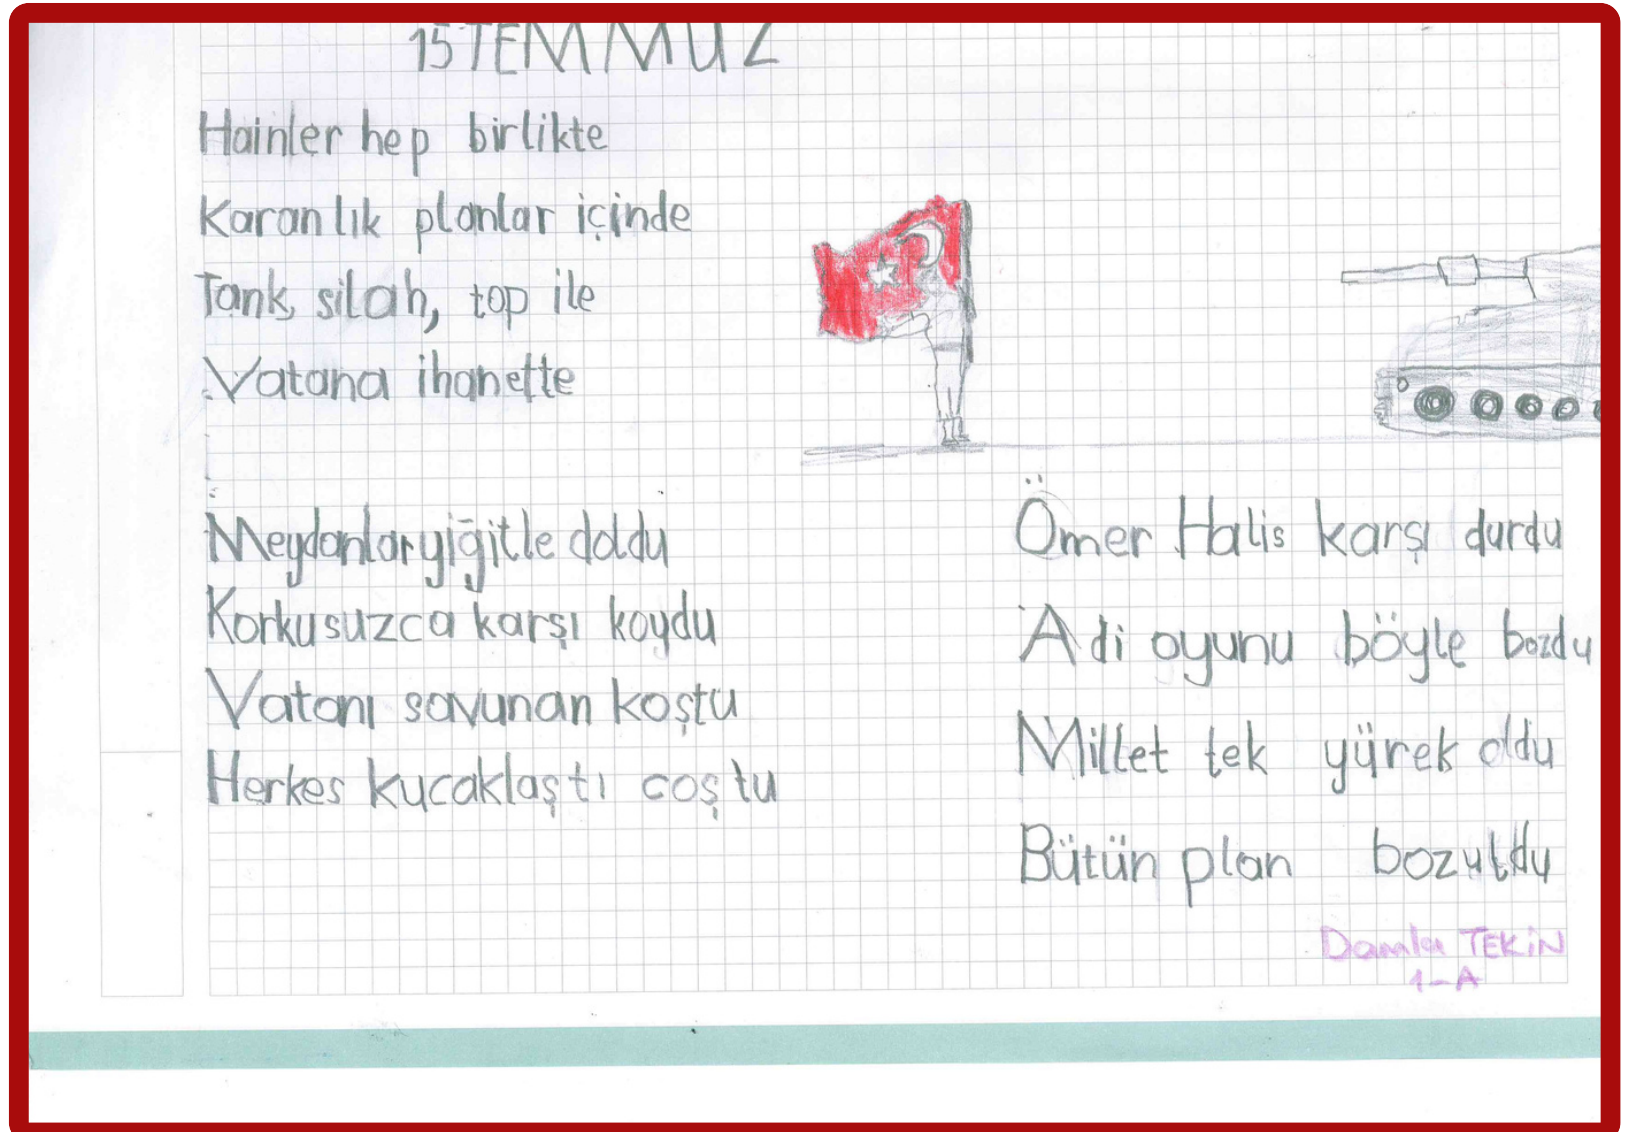 15 TEMMUZ
Hainler hep birlikte
Karanlık planlar içinde
Tank, silah, top ile
Vatana ihanette
Meydanlar yiğitle doldu
Korkusuzca karşı koydu
Vatanı savunan koştu
Herkes kucaklaştı coştu
Ömer Halis karşı durdu
Adi oyunu böyle bozdu
Millet tek yürek oldu
Bütün plan bozuldu
Damla TEKİN
1-A